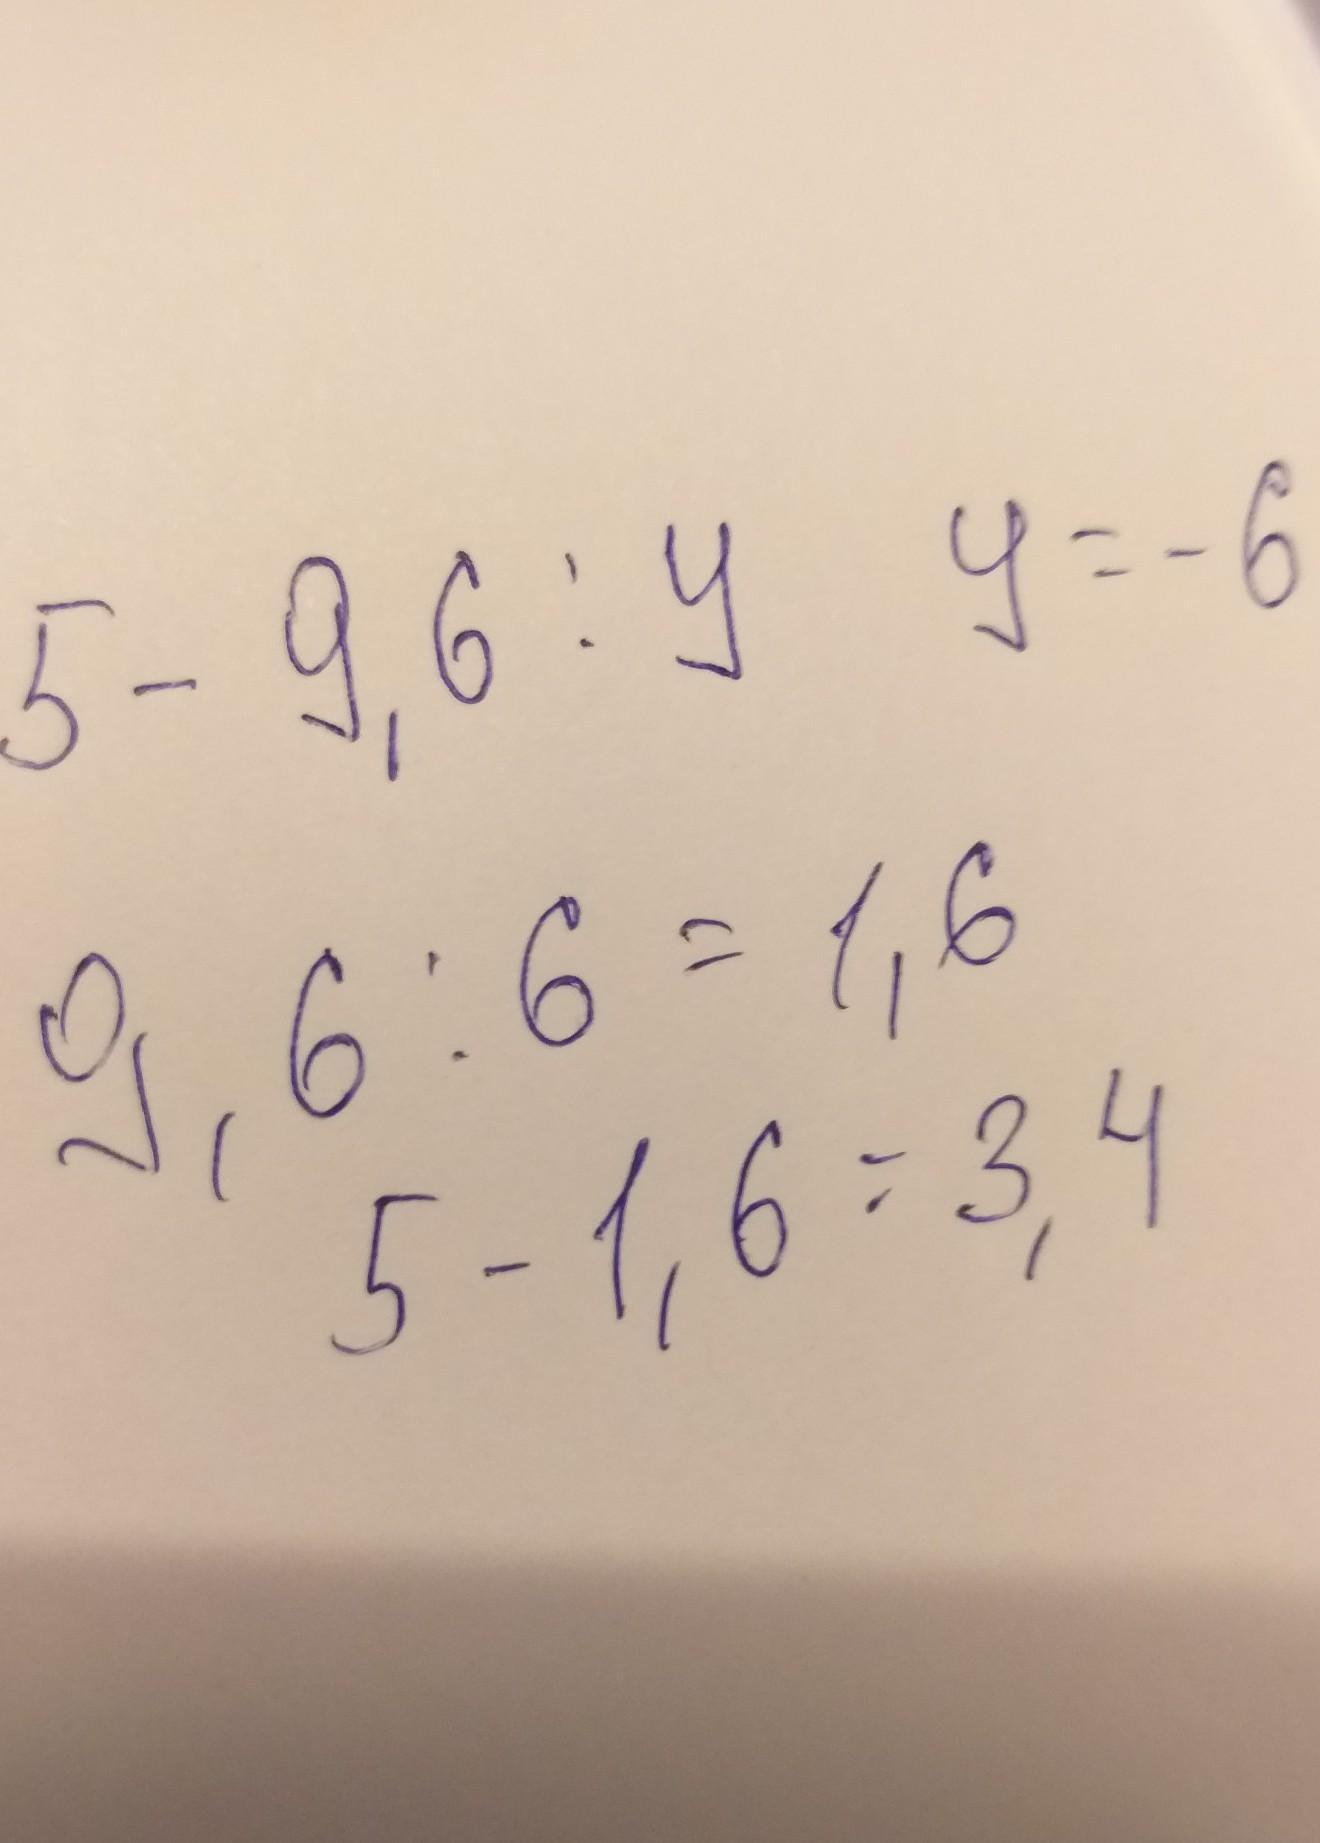 5 - 9,6 : y y = - 6
9,6 : 6 = 1,6
5 - 1,6 = 3,4